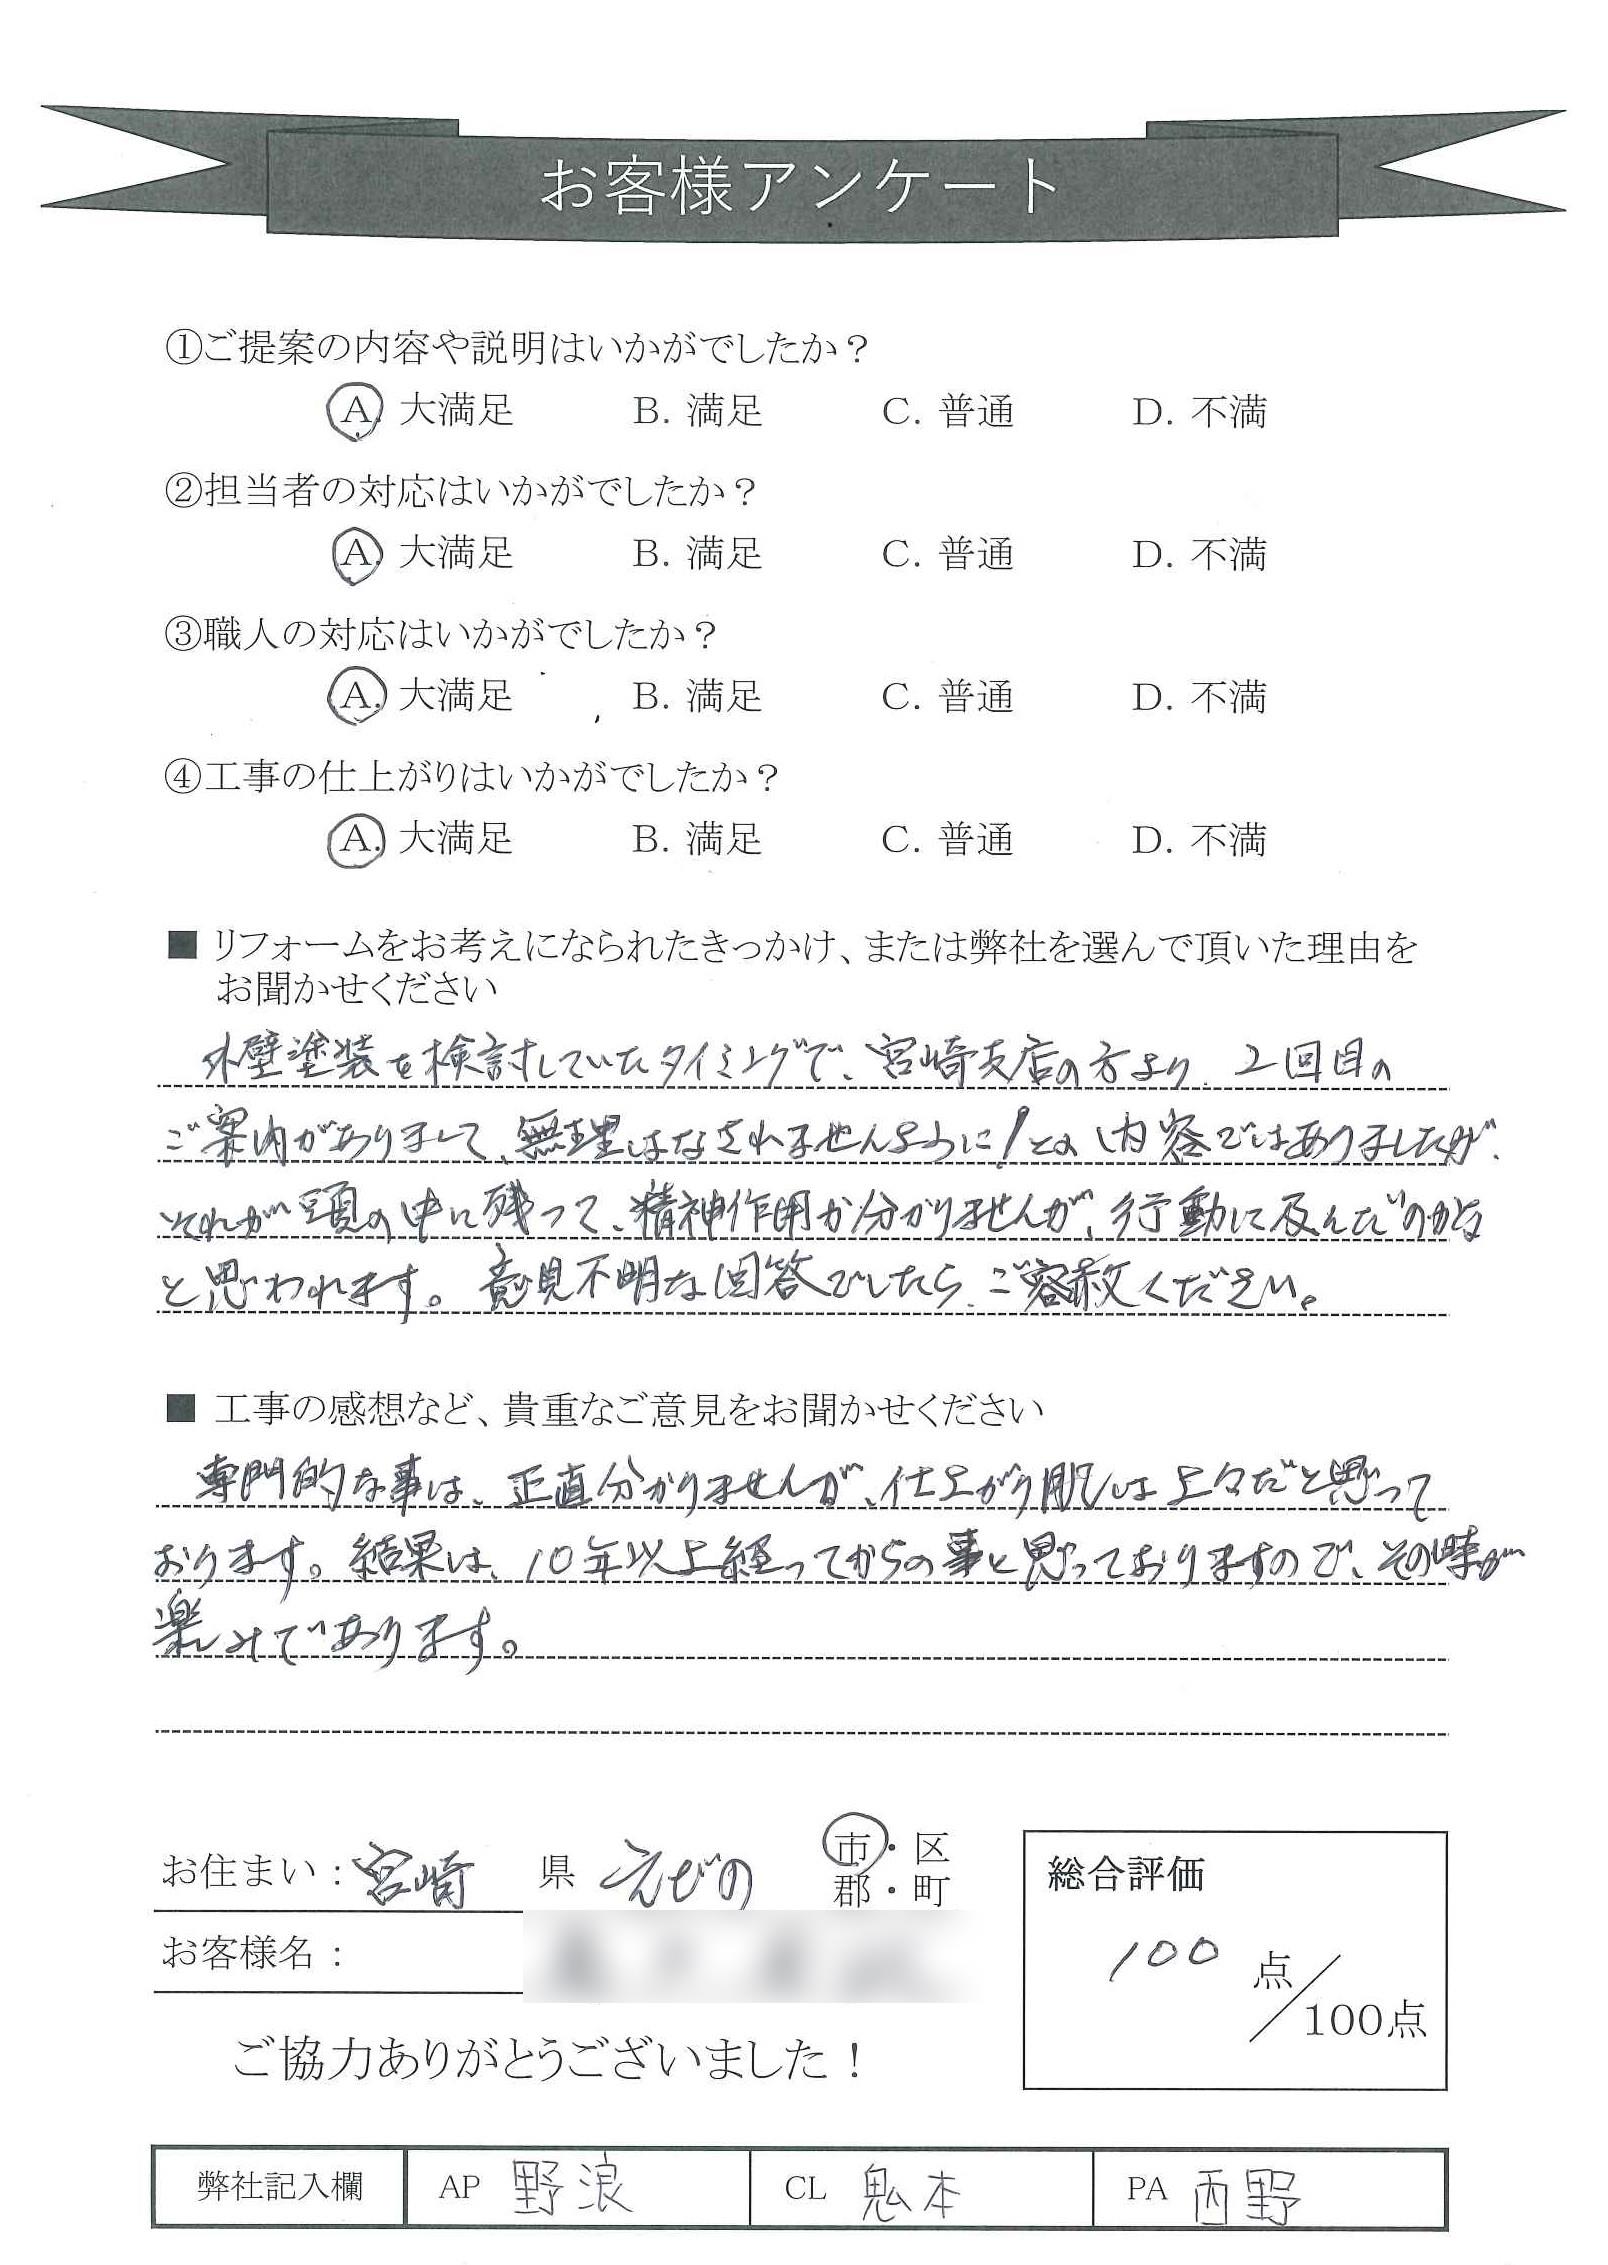 お客様アンケート
①ご提案の内容や説明はいかがでしたか？
A. 大満足 B. 満足 C. 普通 D. 不満
②担当者の対応はいかがでしたか？
A. 大満足 B. 満足 C. 普通 D. 不満
③職人の対応はいかがでしたか？
A. 大満足 B. 満足 C. 普通 D. 不満
④工事の仕上がりはいかがでしたか？
A. 大満足 B. 満足 C. 普通 D. 不満
■ リフォームをお考えになられたきっかけ、または弊社を選んで頂いた理由を
お聞かせください
外壁塗装を検討していたタイミングで、宮崎支店の方より、2回目の
ご案内がありまして、無理はなされませんように!との内容ではありましたが、
それが頭の中に残って、精神作用か分かりませんが、行動に及んだのかな
と思われます。意見不明な回答でしたら、ご容赦ください。
■ 工事の感想など、貴重なご意見をお聞かせください
専門的な事は、正直分かりませんが、仕上がり肌は上々だと思って
おります。結果は、10年以上経ってからの事と思っておりますので、その時が
楽しみであります。
お住まい：宮崎 県 えびの 市・区
郡・町
お客様名：
総合評価
100 点／100点
ご協力ありがとうございました！
弊社記入欄 AP 野浪 CL 鬼本 PA 西野